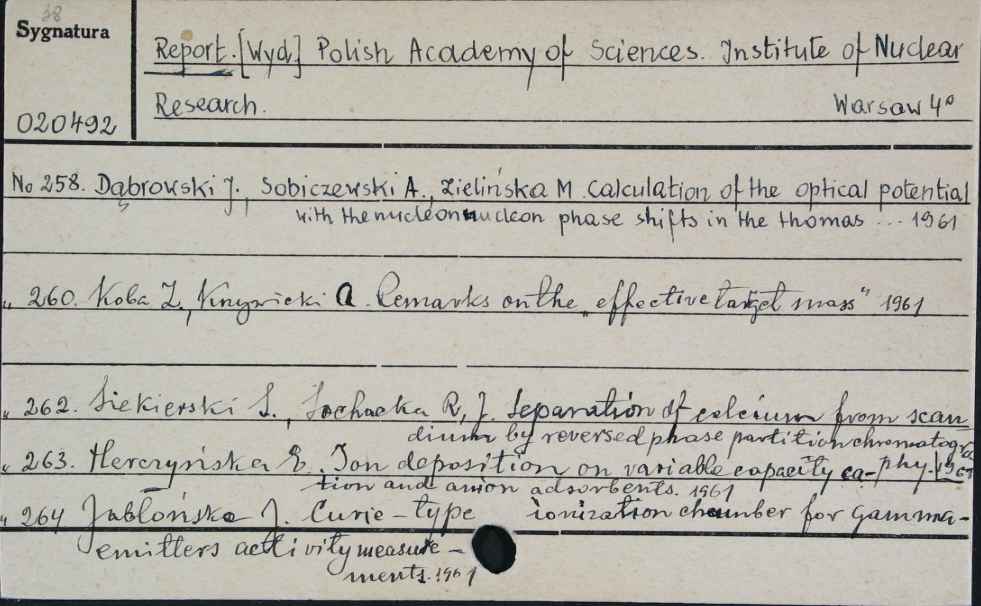 38
Sygnatura
020492
Report. [Wyd.] Polish Academy of Sciences. Institute of Nuclear
Research. Warsaw 4°
No 258. Dąbrowski J., Sobiczewski A., Zielińska M. Calculation of the optical potential
with the nucleon nucleon phase shifts in the thomas ... 1961
„ 260. Koba Z., Krzywicki A. Remarks on the „effective target mass" 1961
„ 262. Siekierski S., Sochacka R., J. Separation of calcium from scan
dium by reversed phase partition chromatogra
„ 263. Herczyńska E. Ion deposition on variable capacity ca- phy. 1961
tion and anion adsorbents. 1961
„ 264 Jabłońska J. Curie-type ionization chamber for gamma-
emitters activity measure-
ments. 1961